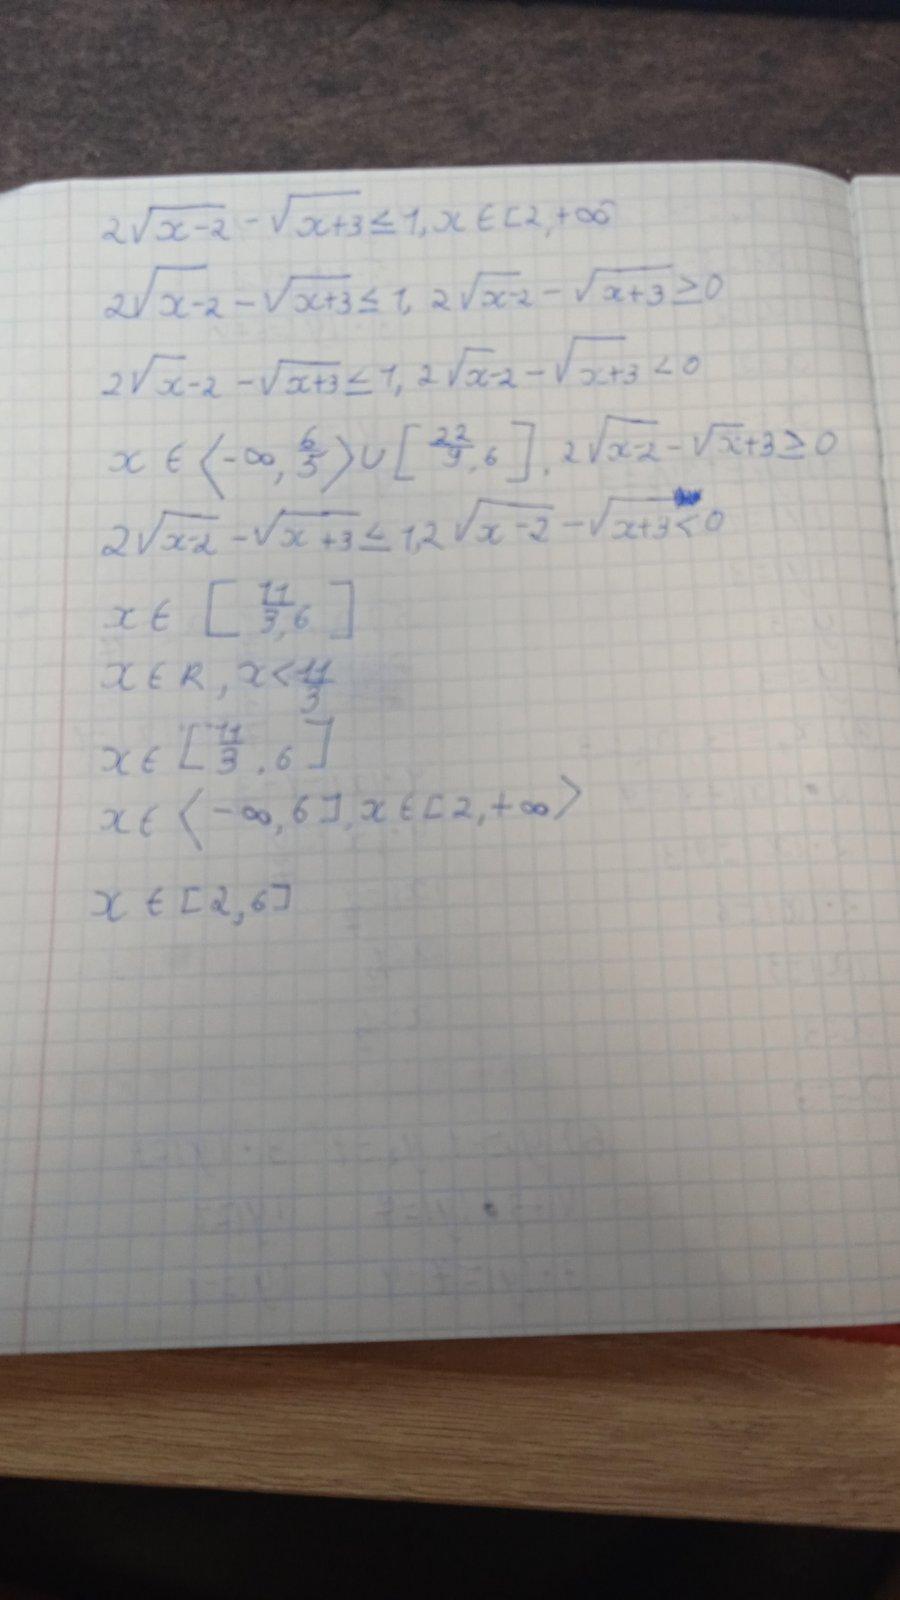 2√(x-2) - √(x+3) ≤ 1, x ∈ [2, +∞
2√x-2 - √(x+3) ≤ 1, 2√x-2 - √(x+3) ≥ 0
2√x-2 - √(x+3) ≤ 1, 2√x-2 - √x+3 < 0
x ∈ ⟨-∞, 6/5⟩ ∪ [22/9, 6], 2√(x-2) - √x+3 ≥ 0
2√(x-2) - √(x+3) ≤ 1, 2√(x-2) - √(x+3) < 0
x ∈ [11/3, 6]
x ∈ R, x < 11/3
x ∈ [11/3, 6]
x ∈ ⟨-∞, 6], x ∈ [2, +∞⟩
x ∈ [2, 6]